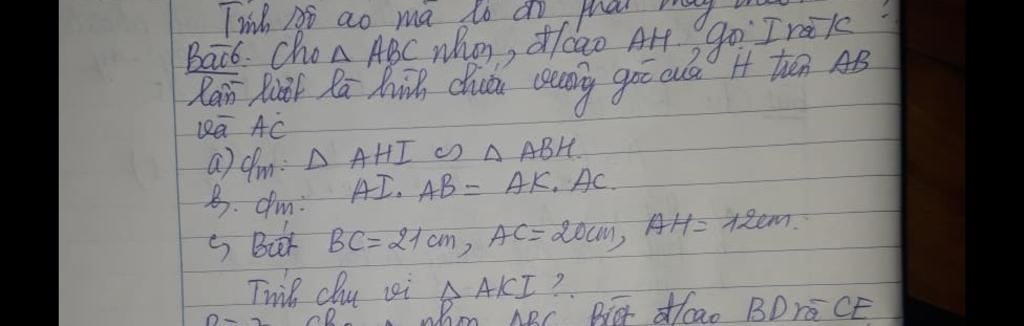 Tính số áo mà tổ đó phải may
Bài 6. Cho Δ ABC nhọn, đ/cao AH. gọi I và K
lần lượt là hình chiếu vuông góc của H trên AB
và AC
a) cm: Δ AHI ∽ Δ ABH.
b. cm: AI. AB = AK. AC.
c, Biết BC = 21 cm, AC = 20cm, AH = 12cm.
Tính chu vi Δ AKI ?
Cho Δ nhọn ABC. Biết đ/cao BD và CE